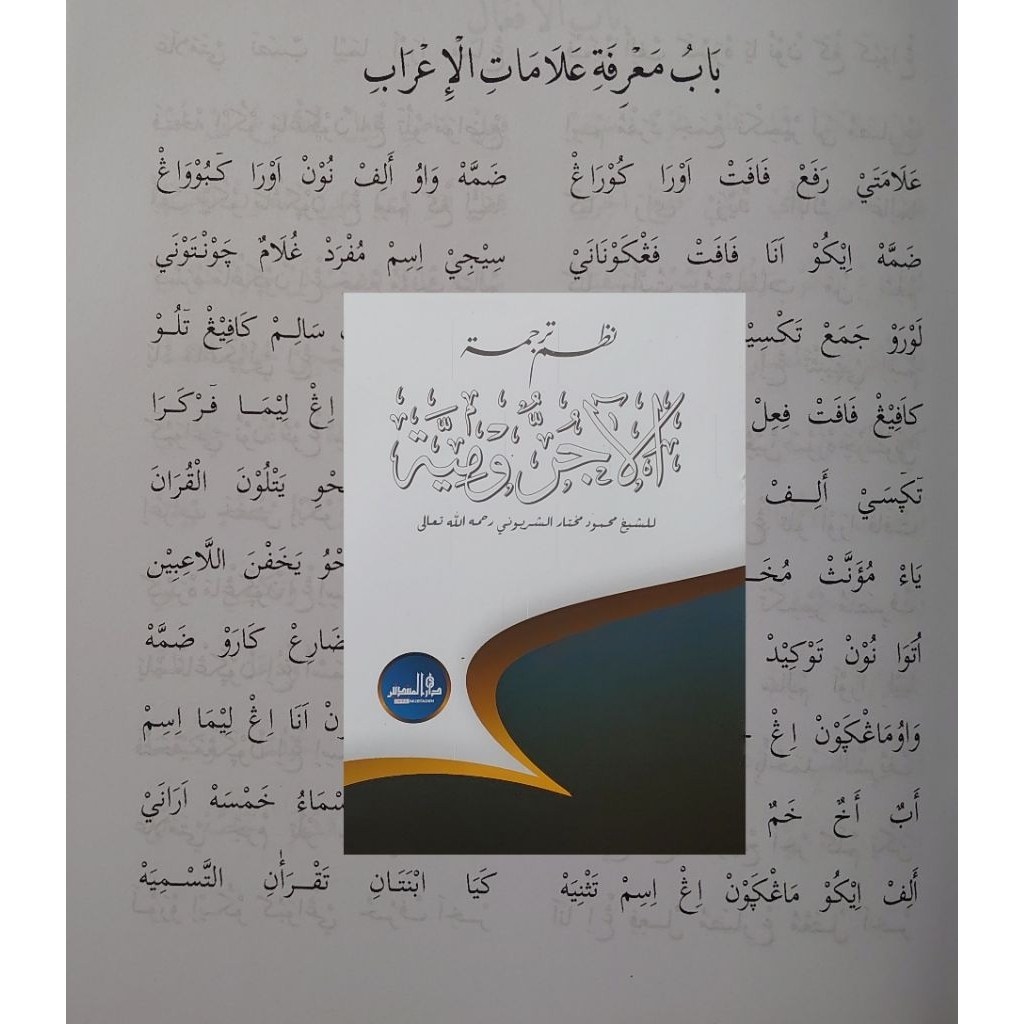 بَابُ مَعْرِفَةِ عَلَامَاتِ الْإِعْرَابِ
عَلَامَتَيْ رَفَعْ فَافَتْ اَوْرَا كُوْرَاڠْ ضَمَّهْ وَاوُ أَلِفْ نُوْنْ اَوْرَا كَبُوْوَاڠْ
ضَمَّهْ اِيْكُوْ اَنَا فَافَتْ فَڠْكَوْنَانَيْ سِيْجِيْ اِسِمْ مُفْرَدْ غُلَامٌ چَوْنْتَوْنَي
لَوْرَوْ جَمَعْ سَالِمْ كَافِيْڠْ تَلُوْ
كاَفِيْڠْ فَافَتْ فِعِلْ اِڠْ لِيْمَا فَرْكَرَا
أَلِفْ يَتْلُوْنَ الْقُرَانَ
يَاءْ مُؤَنَّثْ يَخَفْنَ اللَّاعِبِيْن
اُتَوَا نُوْنْ تَوْكِيْدْ كَارَوْ ضَمَّهْ
وَاوُمَاڠْكَوْنْ اِڠْ اَنَا اِڠْ لِيْمَا اِسِمْ
أَبٌ أَخٌ حَمٌ خَمْسَهْ اَرَانَيْ
أَلِفْ اِيْكُوْ مَاڠْكَوْنْ اِڠْ اِسِمْ تَثْنِيَهْ كَيَا ابْنَتَانِ تَقْرَأٰنِ التَّسْمِيَهْ
نظم ترجمة
الْآجُرُّوْمِيَّة
للشيخ محمود مختار الشربوني رحمه الله تعالى